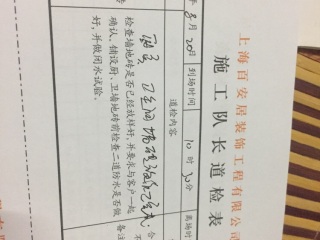 上海百安居装饰工程有限公司
施工队长巡检表
年8月20日
到场时间
10时30分
离场时
巡检内容
卫生间墙砖
检查墙地砖是否已经放样好,并要求与客户一起
确认、铺设厨、卫墙地砖前检查二道防水是否做
好,并做闭水试验。
备注